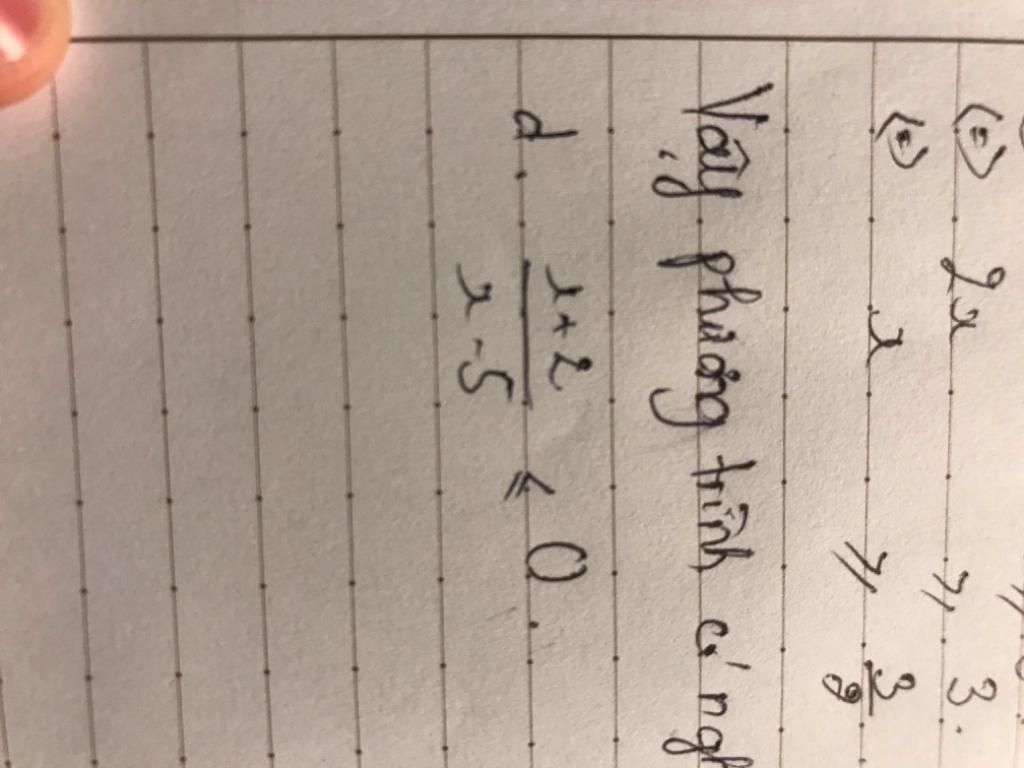 (=) 2x ≥ 3.
(=) x ≥ 3/2
Vậy phương trình có
d. (x+2)/(x-5) ≤ 0.